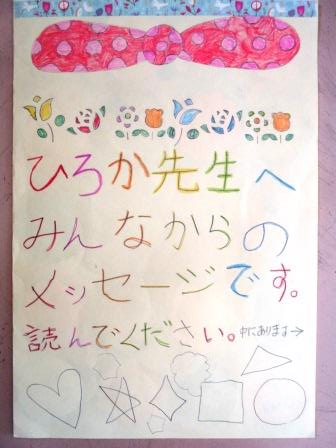 ひろか先生へ
みんなからの
メッセージです。
読んでください。中にあります→